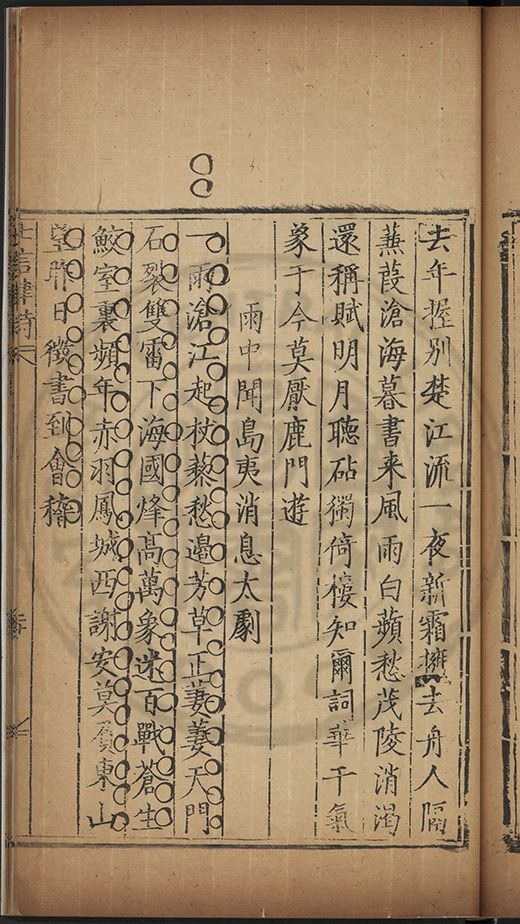 去年握別楚江流一夜新霜擁去舟人隔
蒹葭滄海暮書来風雨白蘋愁茂陵消渴
還稱賦明月聽砧獨倚樓知爾詞華干氣
象于今莫厭鹿門遊
雨中聞島夷消息太劇
一雨滄江起杖藜愁邉芳草正萋萋天門
石裂雙雷下海國烽高萬象迷百戰蒼生
鮫室裏頻年赤羽鳳城西謝安莫負東山
望昨日徵書到會稽
七言律詩